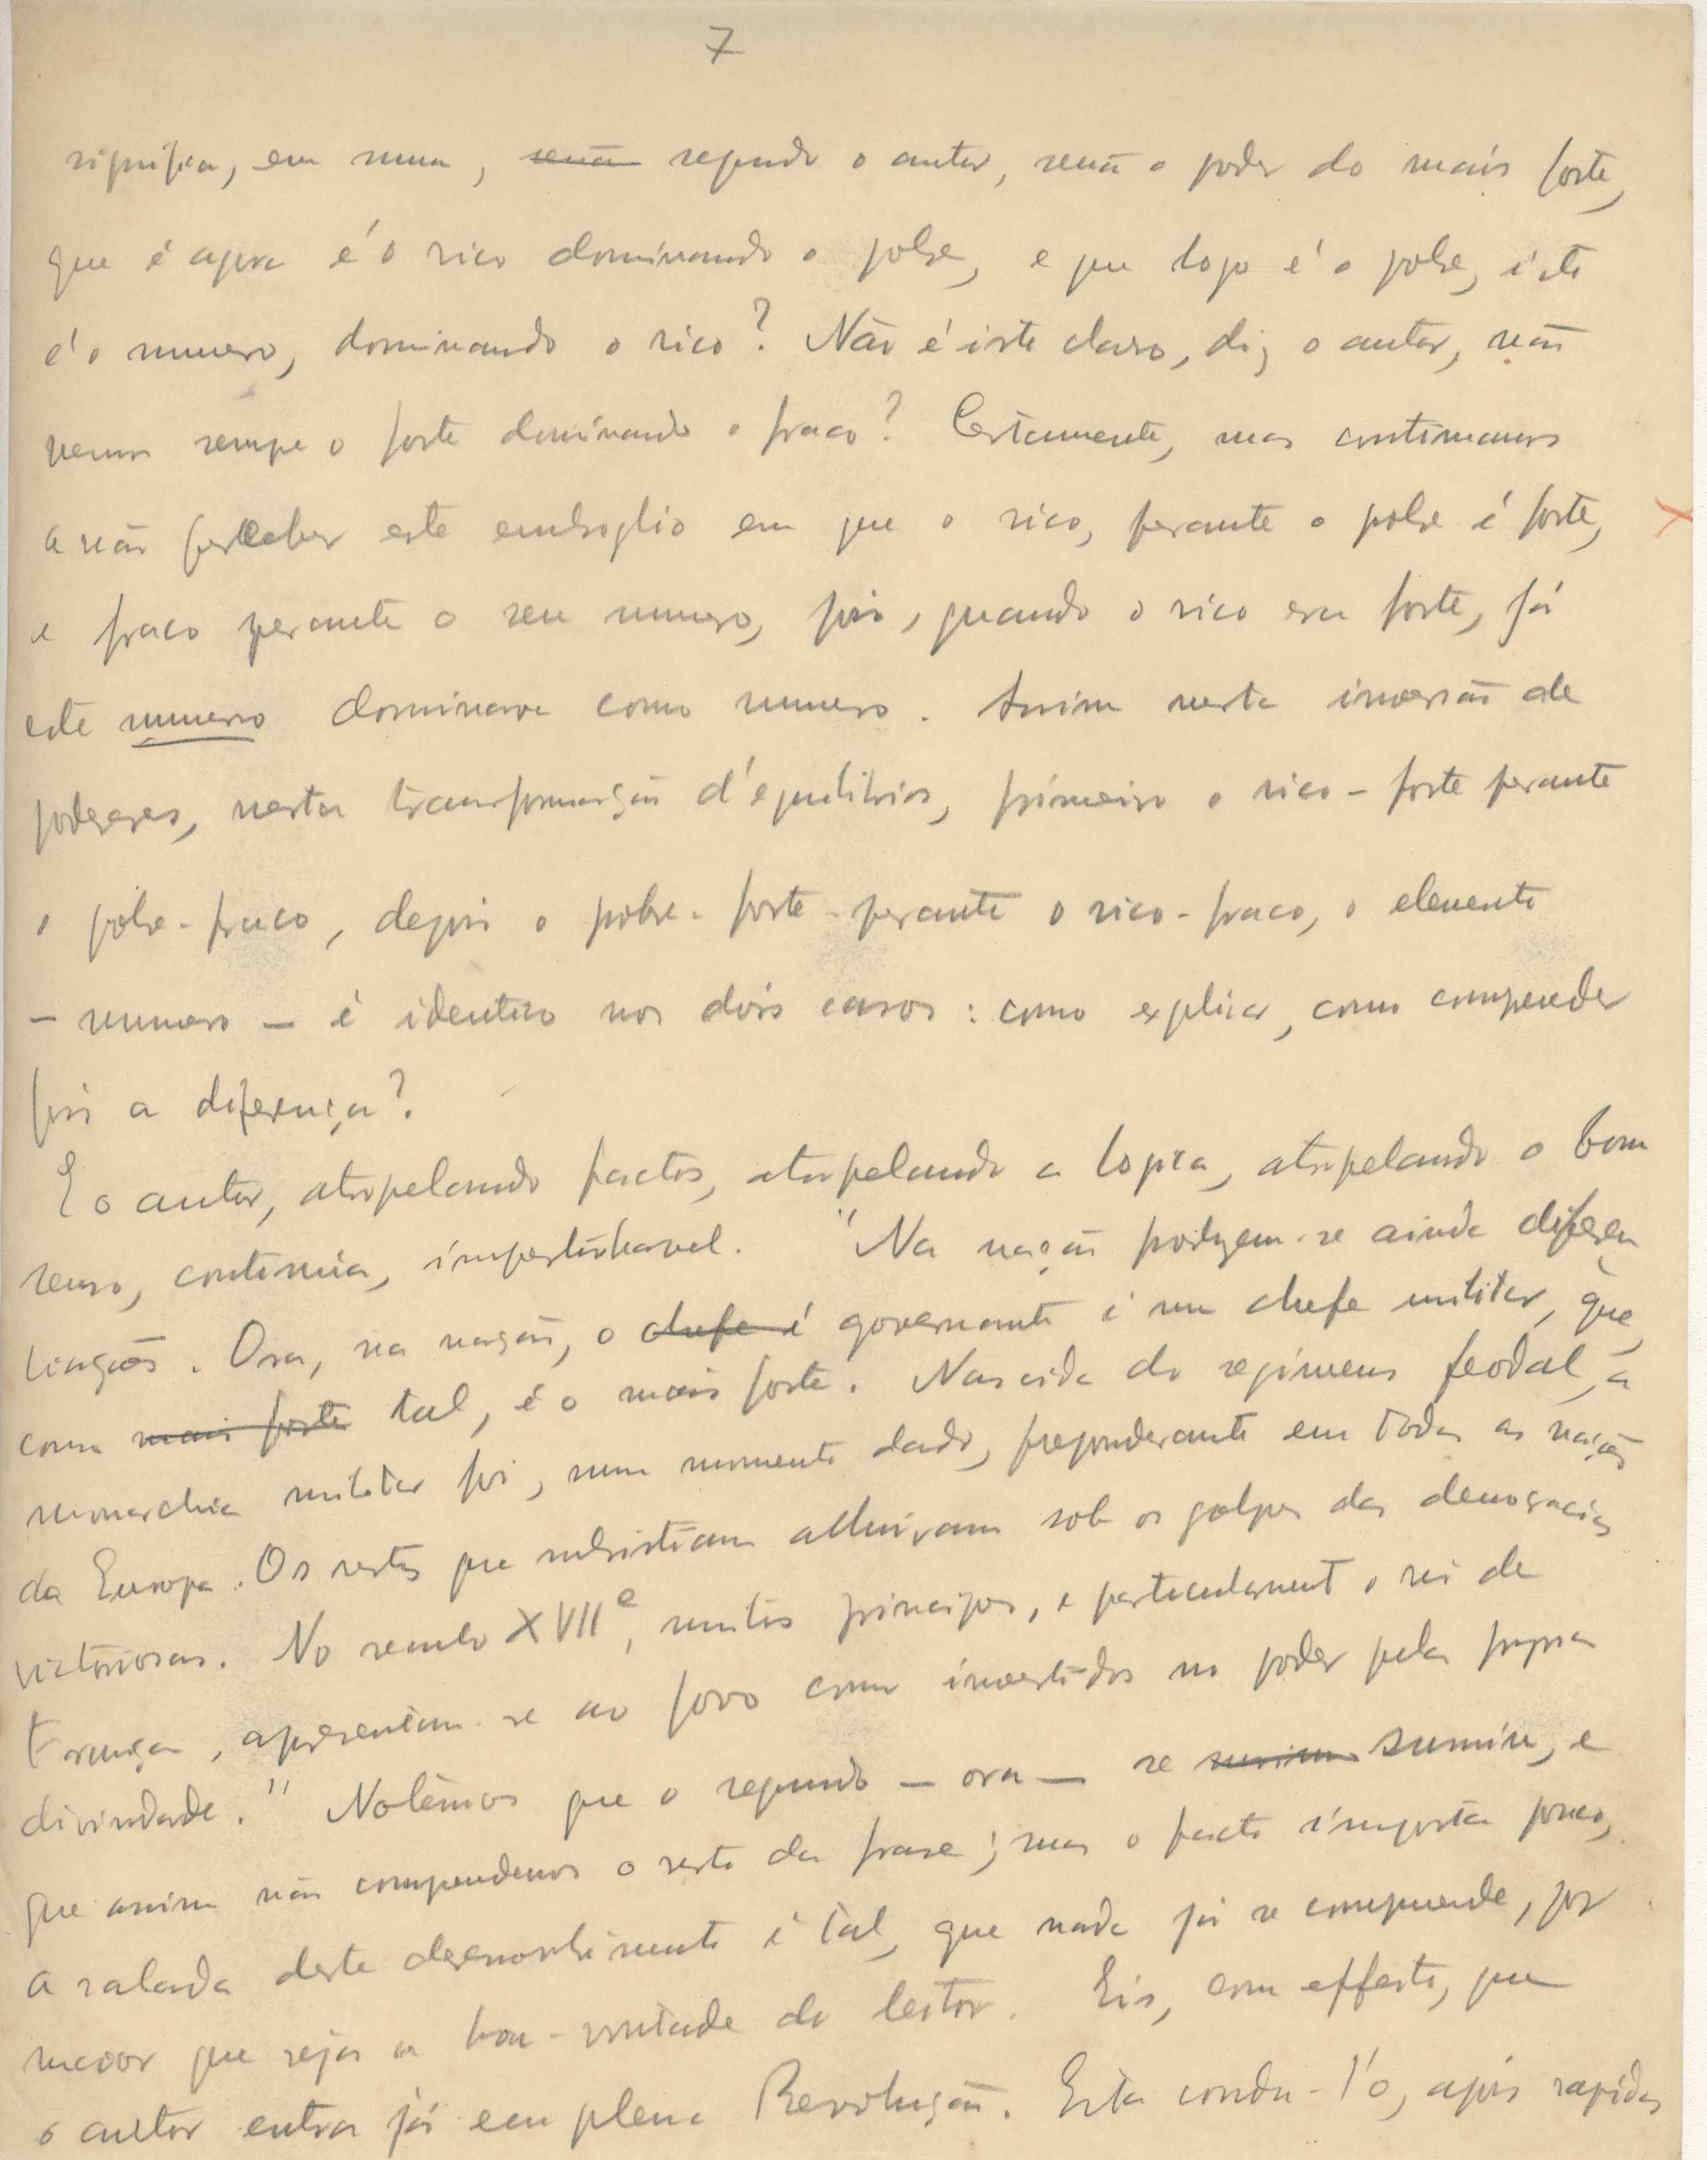 7
significa, em suma, senão segundo o autor, senão o poder do mais forte,
que é agora é o rico dominando o pobre, e que logo é o pobre, isto
é o numero, dominando o rico? Não é isto claro, diz o autor, não
vemos sempre o forte dominando o fraco? Certamente, mas continuamos
a não perceber este embroglio em que o rico, perante o pobre é forte,
e fraco perante o seu numero, pois, quando o rico era forte, já
este numero dominava como numero. Assim nesta inversão de
poderes, nesta transformação d'équilibrios, primeiro o rico-forte perante
o pobre-fraco, depois o pobre-forte perante o rico-fraco, o elemento
- numero - é identico nos dois casos: como explicar, como comprender
pois a diferença?
E o autor, atropelando factos, atropelando a logica, atropelando o bom
senso, continúa, imperturbavel. "Na nação produzem-se ainda diferen
ciações. Ora, na nação, o chefe é governante é um chefe militar, que,
como mais forte tal, é o mais forte. Nascida do regimens feodal, a
monarchia militar foi, num momento dado, preponderante em todas as nações
da Europa. Os restos que subsistiam alluiram sob os golpes das democracias
victoriosas. No seculo XVIIe, muitos principes, e particularment o rei de
França, apresentam-se ao povo como investidos no poder pela propria
divindade." Notêmos que o segundo - ora - se sumiu, e
que assim não comprendemos o resto da frase; mas o facto importa pouco,
a salada deste desenvolvimento é tal, que nada já se comprende, por
maior que seja a boa-vontade do leitor. Eis, com effeito, que
o autor entra já em plena Revolução. Esta condu-l'o, após rapidas